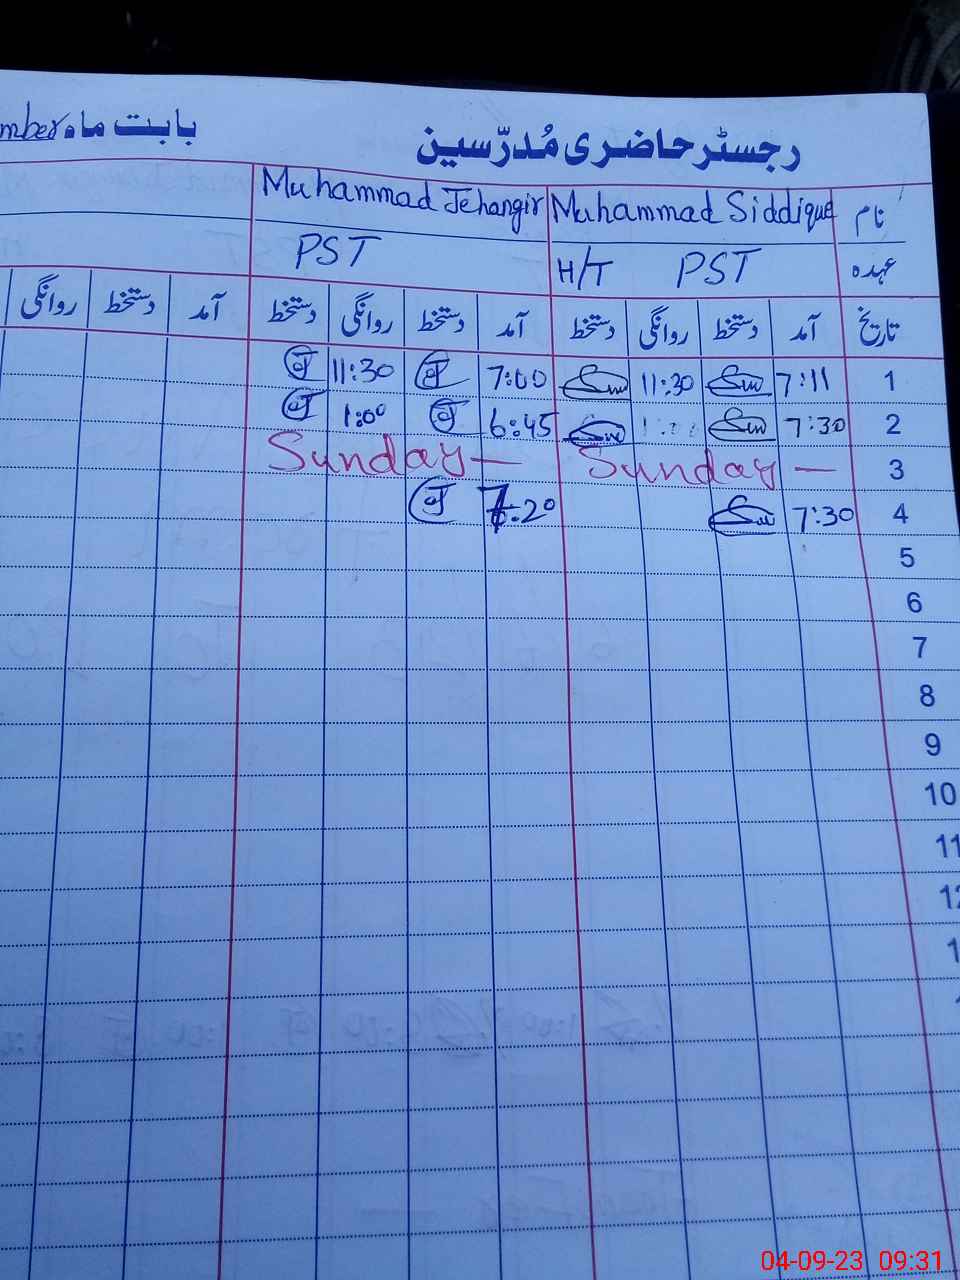 رجسٹر حاضری مُدرّسین بابت ماہ mber
نام Muhammad Siddique Muhammad Jehangir
عہدہ H/T PST PST
تاریخ آمد دستخط روانگی دستخط آمد دستخط روانگی دستخط آمد دستخط روانگی
1 7:11 11:30 7:00 11:30
2 7:30 6:45 1:00
3 Sunday — Sunday —
4 7:30 7:20
5
6
7
8
9
10
11
04-09-23 09:31